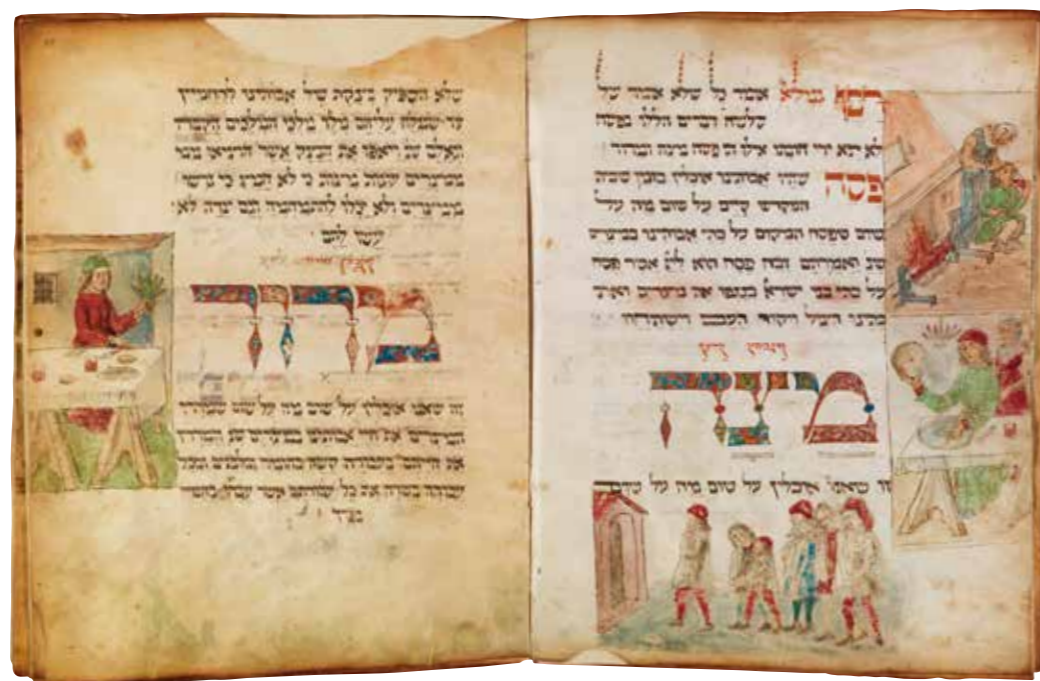 רבן גמליא אומר כל שלא אמר על
שלשה דברים הללו בפסח
לא יצא ידי חובתו אילו הן פסח מצה ומרור
פסח שהיו אבותינו אוכלין בזמן שבית
המקדש קיים על שום מה על
שום שפסח המקום על בתי אבותינו במצרים
שנ ואמרתם זבח פסח הוא אשר פסח
על בתי בני ישרא בנגפו את מצרים ואת
בתינו הציל ויקוד העם וישתחוו
מצה
זו שאנו אוכלין על שום מה על שום
שלא הספיק בצקת של אבותינו להחמיץ
עד שנגלה עליהם מלך מלכי המלכים
וגאלם שנ ויאפו את הבצק אשר הוציאו
ממצרים עוגות מצות כי לא חמץ כי גורשו
ממצרים ולא יכלו להתמהמה וגם צידה לא
עשו להם
מרור
זה שאנו אוכלין על שום מה על שום שמררו
המצרים את חיי אבותינו במצרים שנ וימררו
את חייהם בעבודה קשה בחומר ובלבנים ובכל
עבודה בשדה את כל עבודתם אשר עבדו בהם
בפרך